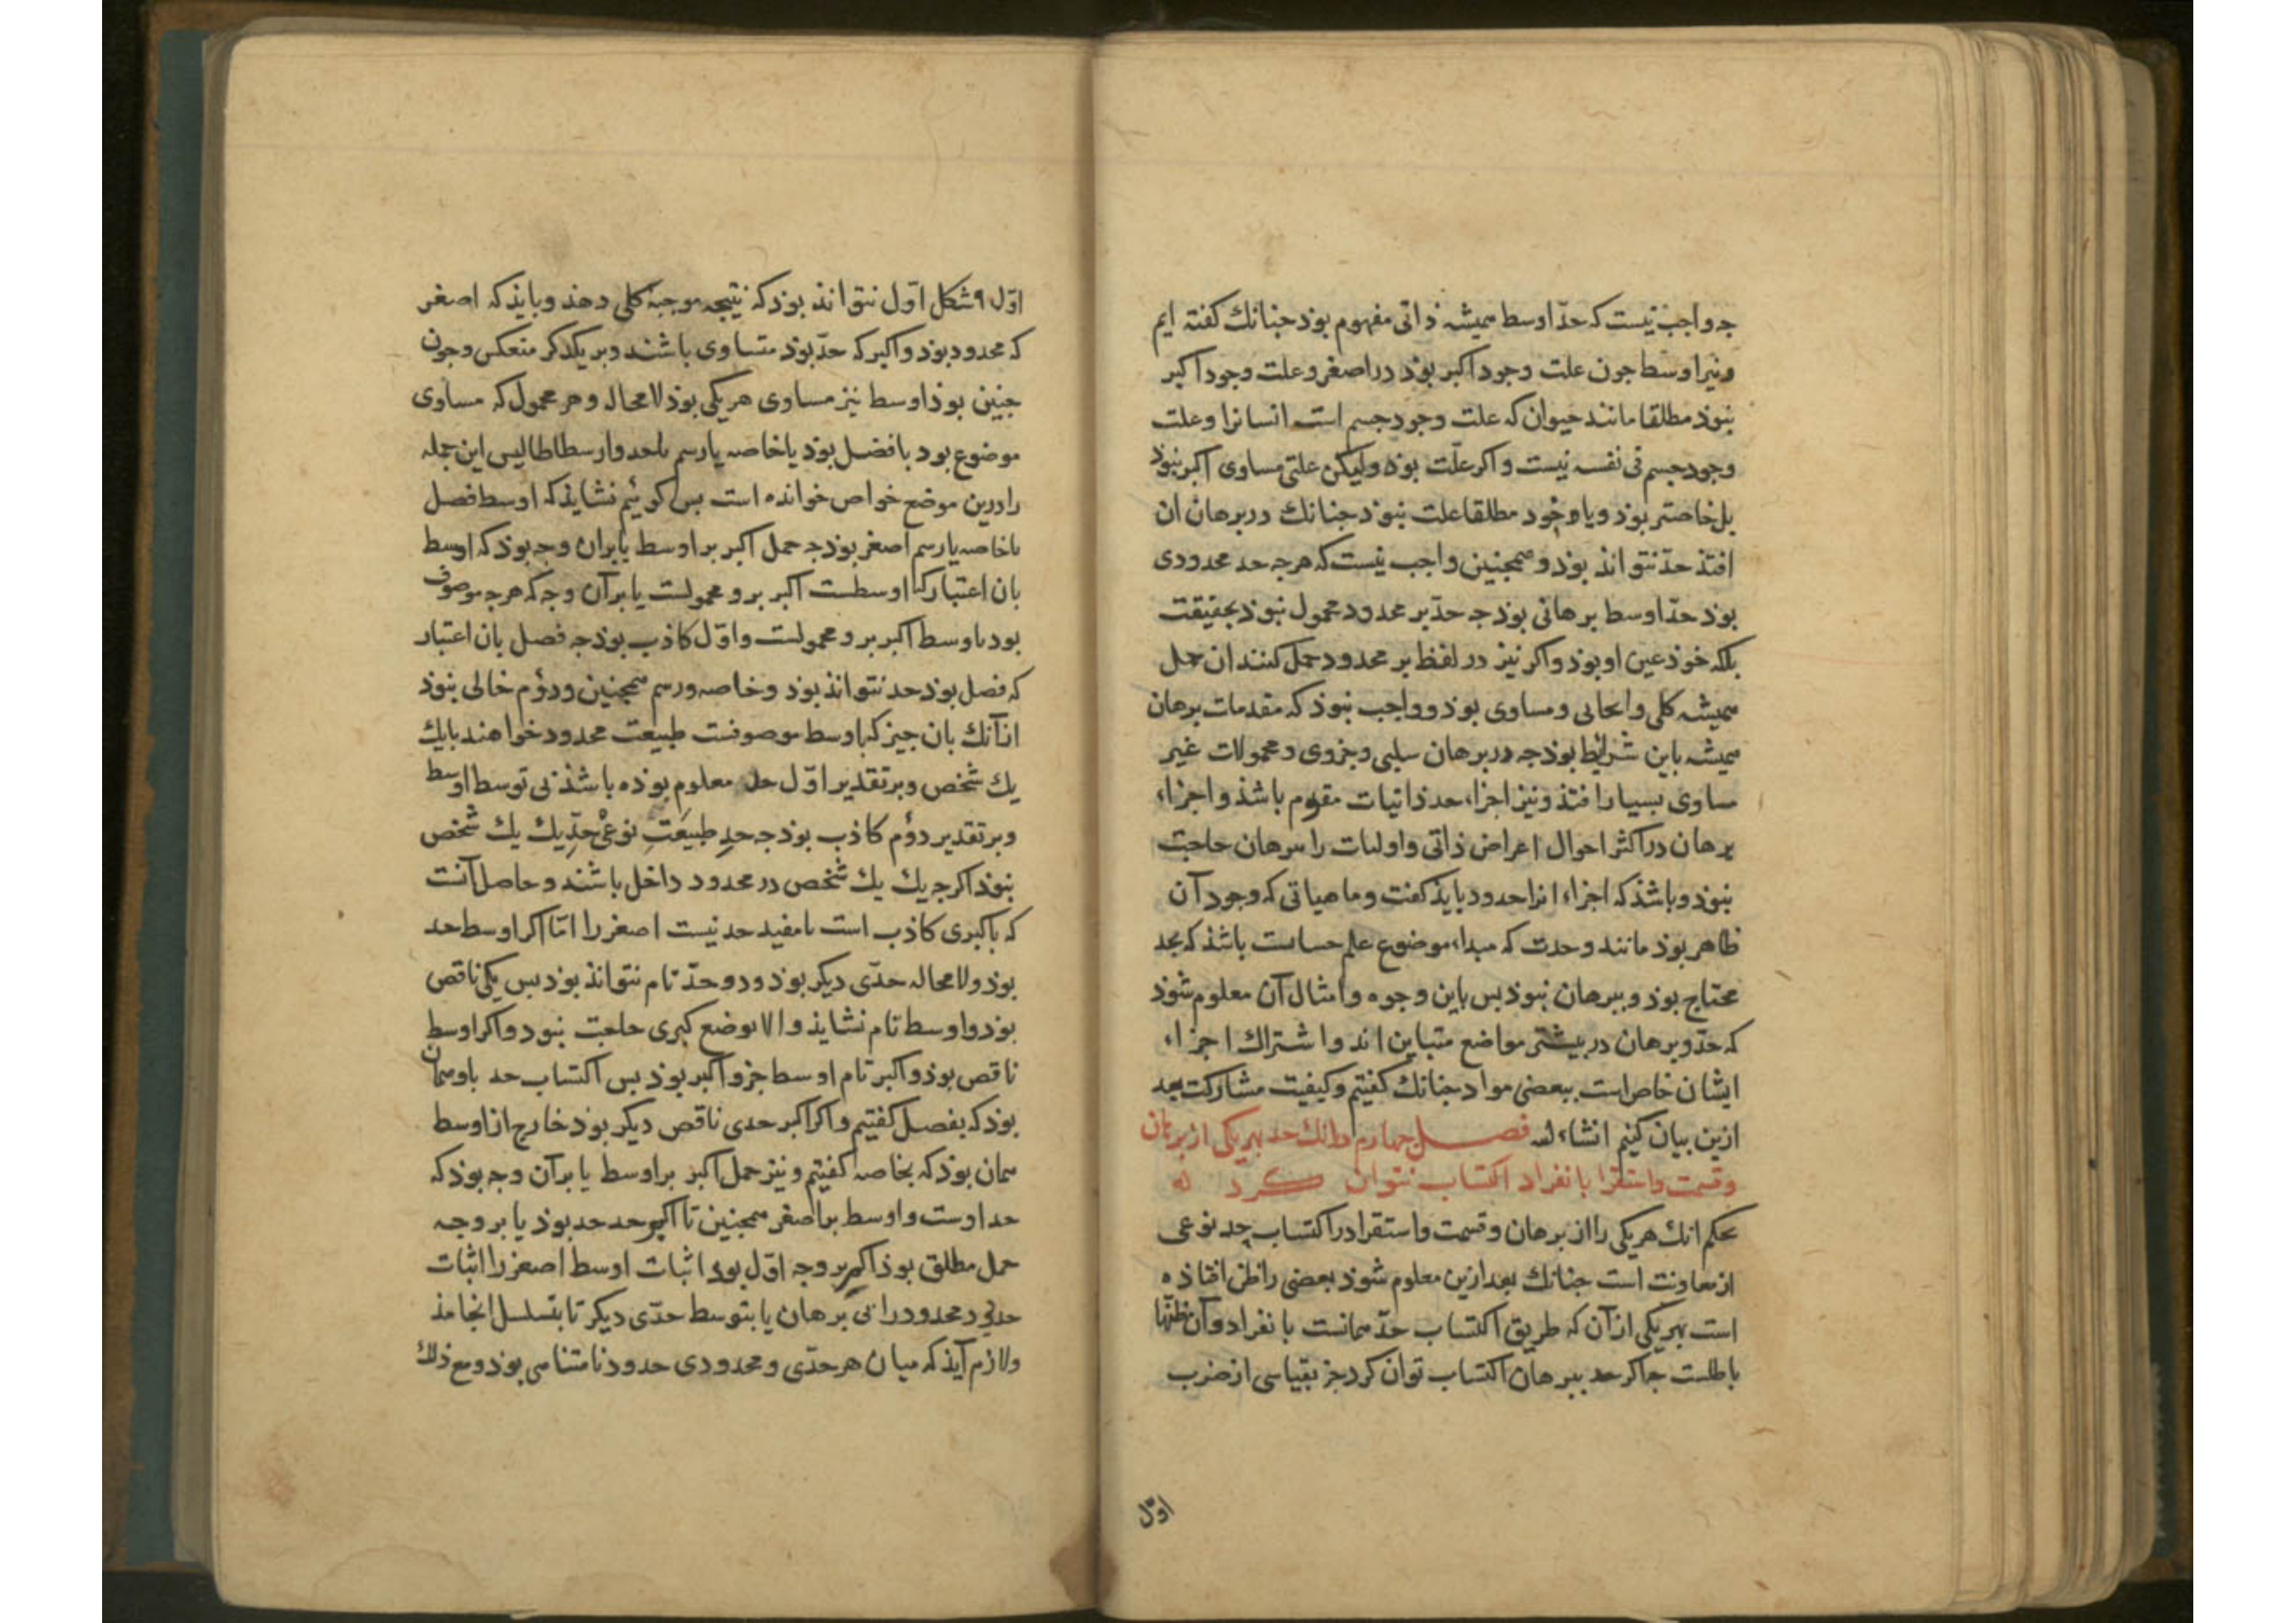 جه واجب نیست که حدّ اوسط همیشه ذاتی مفهوم بوذ جنانك کفته ایم
ونیز اوسط جون علت وجود اکبر بوذ در اصغر وعلت وجود اکبر
نبوذ مطلقا مانند حیوان که علت وجود جسم است انسانرا وعلت
وجود جسم فی نفسه نیست واکر علّت بوذ ولیکن علتی مساوی اکبر نبوذ
بل خاصتر بوذ ویا وجود مطلقا علت نبوذ جنانك در برهان ان
افتذ حدّ نتواند بوذ و همجنین واجب نیست که هرجه حد محدودی
بوذ حدّ اوسط برهانی بوذ جه حدّ بر محدود محمول نبوذ بحقیقت
بلکه خوذ عین او بوذ واکر نیز در لفظ بر محدود حمل کنند ان حمل
همیشه کلی وایجابی ومساوی بوذ وواجب نبوذ که مقدمات برهان
همیشه باین شرایط بوذ جه در برهان سلبی وجزوی ومحمولات غیر
مساوی بسیار افتذ ونیز اجزاء حد ذاتیات مقوم باشذ واجزاء
برهان در اکثر احوال اعراض ذاتی واولیات را ببرهان حاجت
نبوذ وباشذ که اجزاء انرا حدود بایذ کفت وماهیاتی که وجود آن
ظاهر بوذ مانند وحدت که مبداء موضوع علم حسابست باشذ که بحد
محتاج بوذ وببرهان نبوذ بس باین وجوه وامثال آن معلوم شوذ
که حدّ وبرهان در بیشتر مواضع متباین اند واشتراك اجزاء
ایشان خاص است ببعضی مواد جنانك کفتیم وکیفیت مشارکت بعد
ازین بیان کنیم انشاءالله فصل جهارم در انك حد بهر یکی از برهان
وقسمت واستقرا بانفراد اکتساب نتوان کرد
بحکم انك هریکی را از برهان وقسمت واستقرا در اکتساب حد نوعی
از معاونت است جنانك بعد ازین معلوم شوذ بعضی را ظن افتاذه
است بهر یکی از آن که طریق اکتساب حدّ همانست بانفراد وآن ظنّها
باطلست جه اکر حد ببرهان اکتساب توان کرد جز بقیاسی از ضرب
اوّل
اوّل از شکل اوّل نتواند بوذ که نتیجه موجبهٔ کلی دهذ وبایذ که اصغر
که محدود بوذ واکبر که حدّ بوذ متساوی باشند وبر یکدکر منعکس وجون
جنین بوذ اوسط نیز مساوی هر یکی بوذ لامحاله وهر محمول که مساوی
موضوع بوذ یا فصل بوذ یا خاصه یا رسم یا حد وارسطاطالیس این جمله
را درین موضع خواص خوانده است بس کوئیم نشایذ که اوسط فصل
یا خاصه یا رسم اصغر بوذ جه حمل اکبر بر اوسط یا بران وجه بوذ که اوسط
بان اعتبار که اوسطست اکبر برو محمولست یا بر آن وجه که هرجه موصوف
بود باوسط اکبر برو محمولست واوّل کاذب بوذ جه فصل بان اعتبار
که فصل بوذ حد نتوانذ بوذ وخاصه ورسم همجنین ودوُم خالی نبوذ
از آنك بان جیز که باوسط موصوفست طبیعت محدود خواهند یا یك
یك شخص وبر تقدیر اوّل حد معلوم بوذه باشذ بی توسط اوسط
وبر تقدیر دوُم کاذب بوذ جه حدِ طبیعَتِ نوعی حدِّ یك یك شخص
نبوذ اکرجه یك یك شخص در محدود داخل باشند وحاصل آنست
که یا کبری کاذب است یا مفید حد نیست اصغر را امّا اکر اوسط حد
بوذ ولامحاله حدّی دیکر بوذ ودو حدّ تام نتوانذ بوذ بس یکی ناقص
بوذ واوسط تام نشایذ والا بوضع کبری حاجت نبود واکر اوسط
ناقص بوذ واکبر تام اوسط جزو اکبر بوذ بس اکتساب حد باو همان
بوذ که بفصل کفتیم واکر اکبر حدی ناقص دیکر بوذ خارج از اوسط
همان بوذ که بخاصه کفتیم ونیز حمل اکبر بر اوسط یا بر آن وجه بوذ که
حد اوست واوسط بر اصغر همجنین تا اکبر حد حد بوذ یا بر وجه
حمل مطلق بوذ اکر بر وجه اوّل بود اثبات اوسط اصغر را اثبات
حدی بود محدود را بی برهان یا بتوسط حدّی دیکر تا بتسلسل انجامذ
ولازم آیذ که میان هر حدّی ومحدودی حدود نامتناهی بوذ ومع ذلك